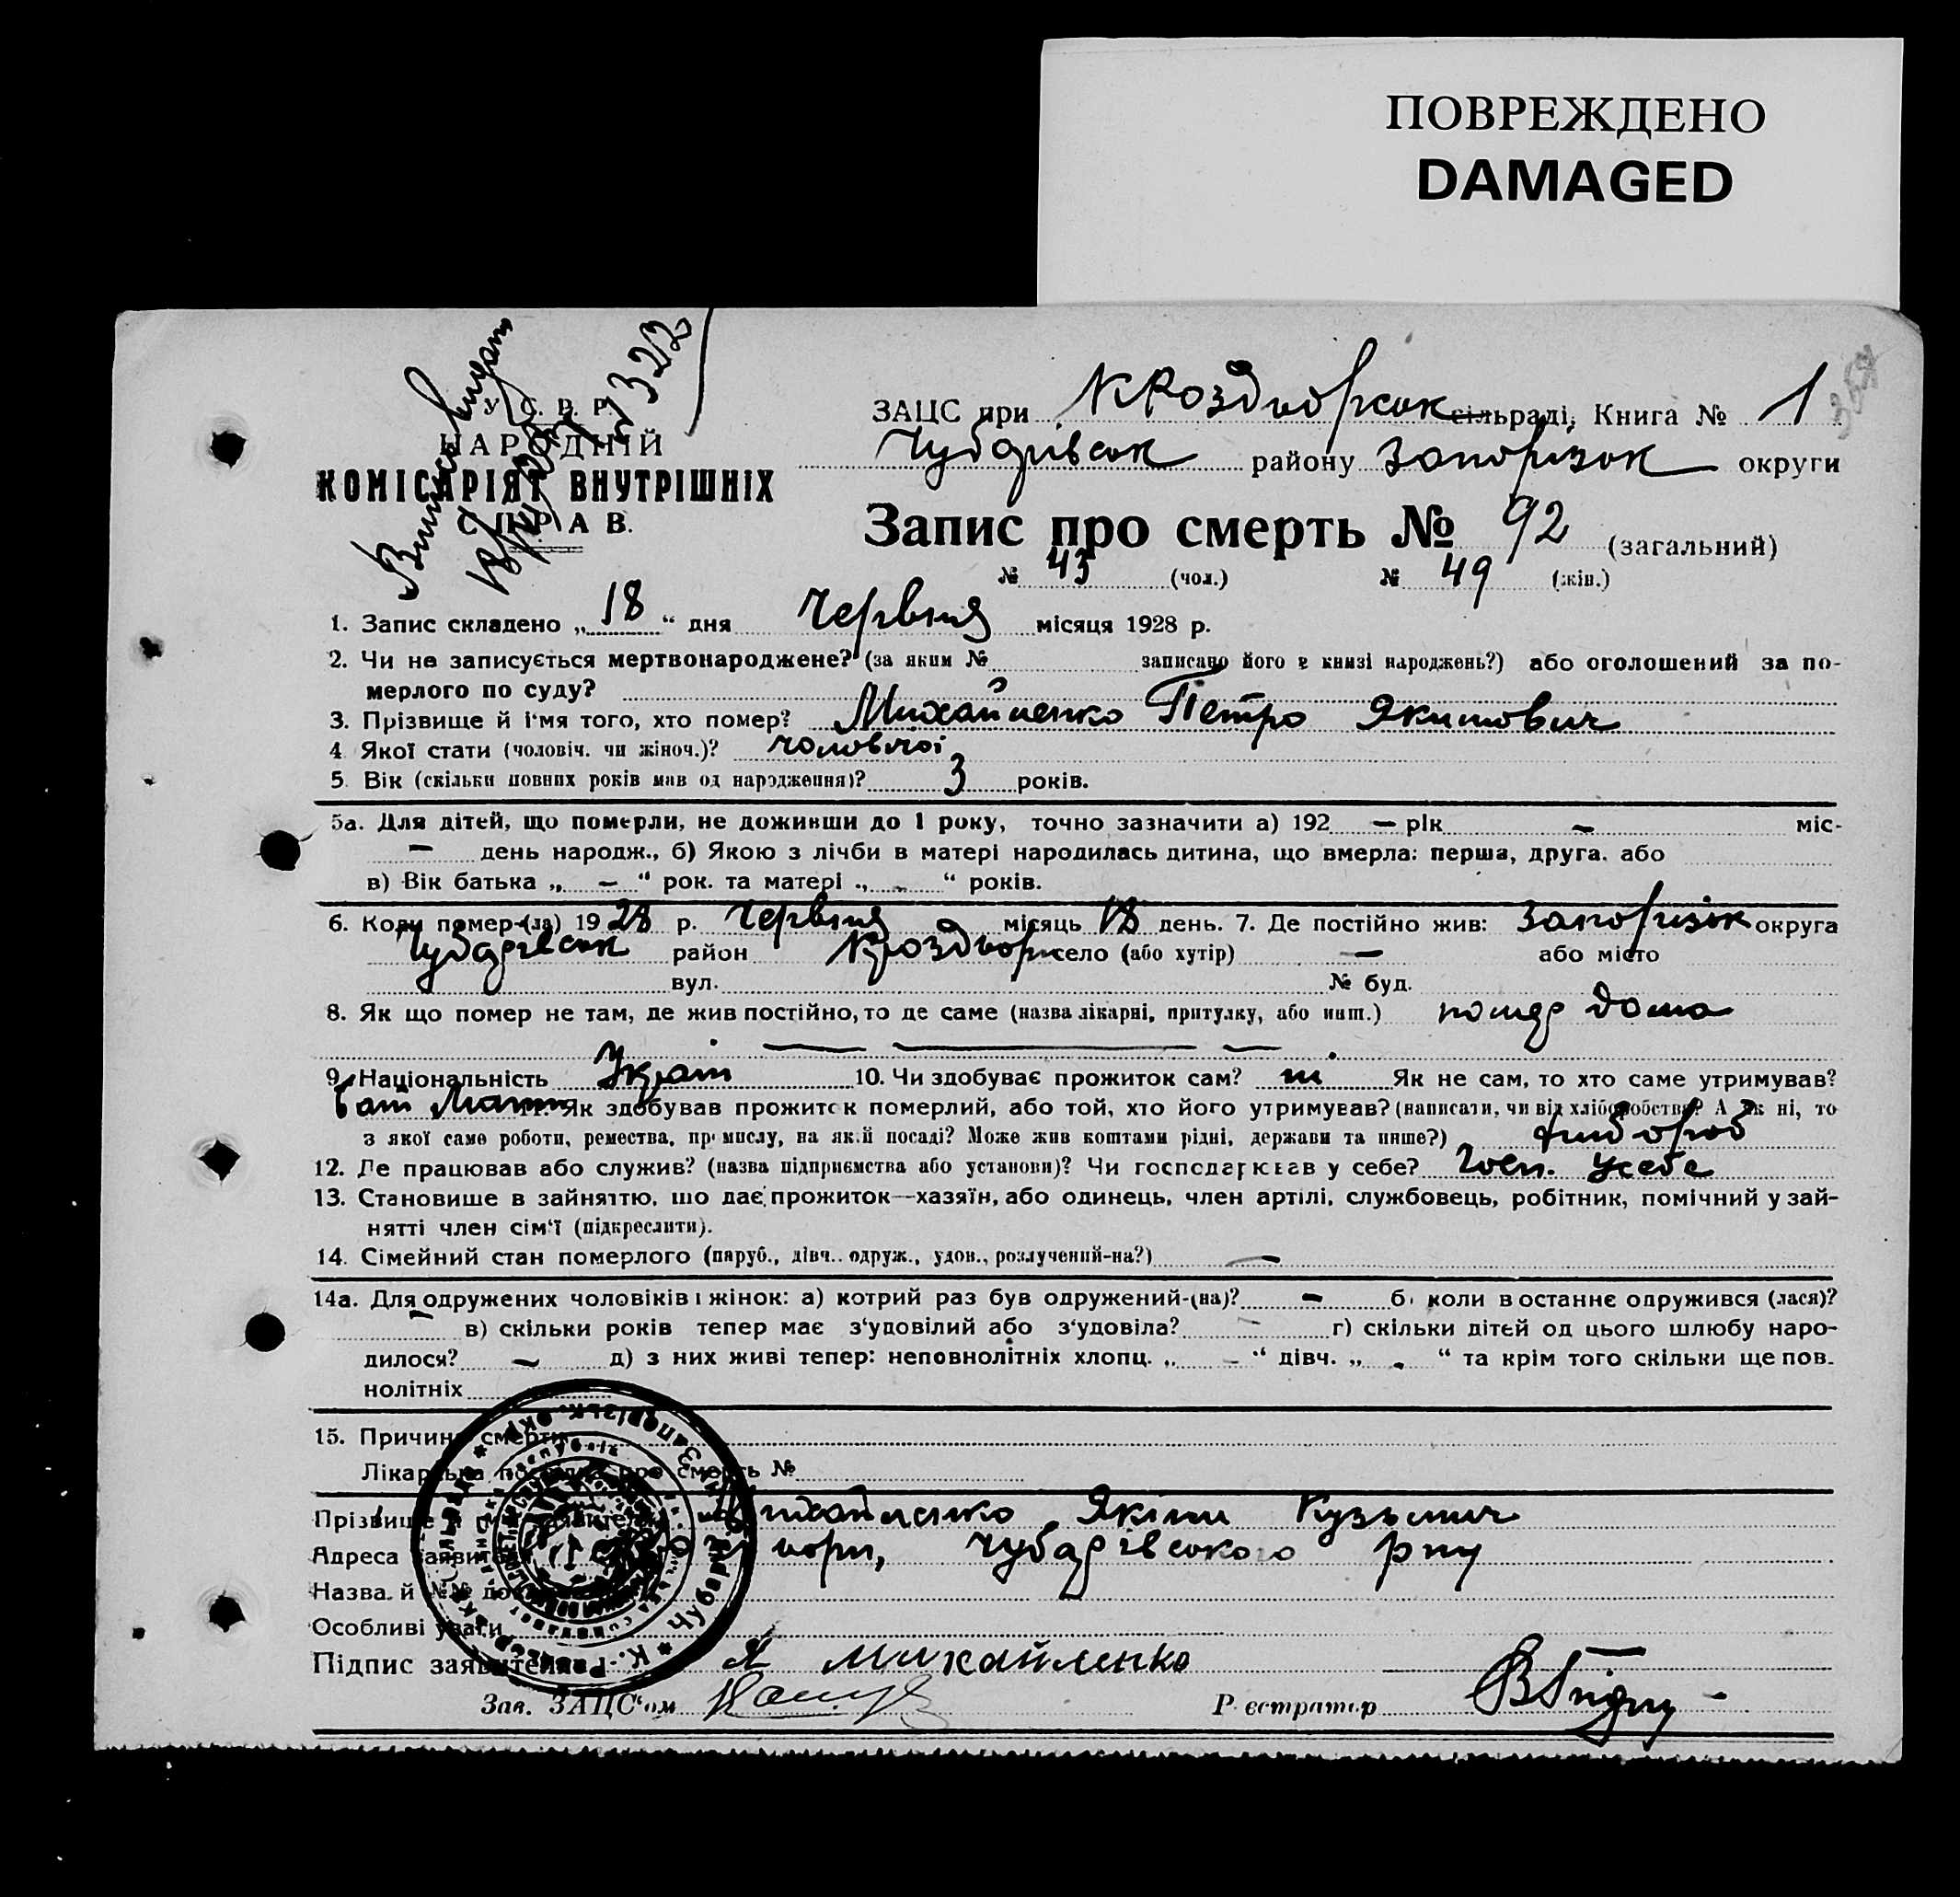 ПОВРЕЖДЕНО
DAMAGED
У. С. Р. Р.
НАРОДНІЙ
КОМІСАРІЯТ ВНУТРІШНІХ
СПРАВ.
ЗАЦС при КРоздорськ сільраді, Книга № 1
Чубарівськ району Запорізьк округи
Запис про смерть № 92 (загальний)
№ 43 (чол.) № 49 (жін.)
1. Запис складено „ 18 “ дня Червня місяця 1928 р.
2. Чи не записується мертвонароджене? (за яким № записано його в книзі народжень?) або оголошений за по-
мерлого по суду?
3. Прізвище й ім'я того, хто помер? Михайленко Петро Якимович
4 Якої стати (чоловіч. чи жіноч.)? чоловічої
5. Вік (скільки повних років мав од народження)? 3 років.
5а. Для дітей, що померли, не доживши до 1 року, точно зазначити а) 192 — рік — міс-
— день народж., б) Якою з лічби в матері народилась дитина, що вмерла: перша, друга. або
в) Вік батька „ — “ рок. та матері „ - “ років.
6. Коли помер-(ла) 1928 р. Червня місяць 18 день. 7. Де постійно жив: Запорізьк округа
Чубарівськ район село (або хутір) — або місто
вул. № буд.
8. Як що помер не там, де жив постійно, то де саме (назва лікарні, притулку, або инш.) помер дома
9. Національність Україн 10. Чи здобуває прожиток сам? ні Як не сам, то хто саме утримував?
Бат Мати 11. Як здобував прожиток померлий, або той, хто його утримував? (написати, чи від хліборобства? А як ні, то
з якої саме роботи, ремества, промислу, на якій посаді? Може жив коштами рідні, держави та инше?) хлибороб
12. Де працював або служив? (назва підприємства або установи)? Чи господарював у себе? Госп. у себе
13. Становище в зайняттю, що дає прожиток—хазяїн, або одинець, член артілі, службовець, робітник, помічний у зай-
нятті член сім'ї (підкреслити).
14. Сімейний стан померлого (паруб., дівч.. одруж., удов., розлучений-на?) —
14а. Для одружених чоловіків і жінок: а) котрий раз був одружений-(на)? — б) коли востаннє одружився (лася)?
— в) скільки років тепер має з'удовілий або з'удовіла? — г) скільки дітей од цього шлюбу наро-
дилося? — д) з них живі тепер: неповнолітніх хлопц. „ - “ дівч. „ - “ та крім того скільки ще пов.
нолітніх
15. Причина смерти
Лікарська посвідка про смерть №
Прізвище й ім'я заявителя Михайленко Якім Кузьмич
Адреса заявителя Чубарівського р-ну
Назва й №№ док
Особливі уваги
Підпис заявителя Я Михайленко
Зав. ЗАЦС'ом Реєстратор